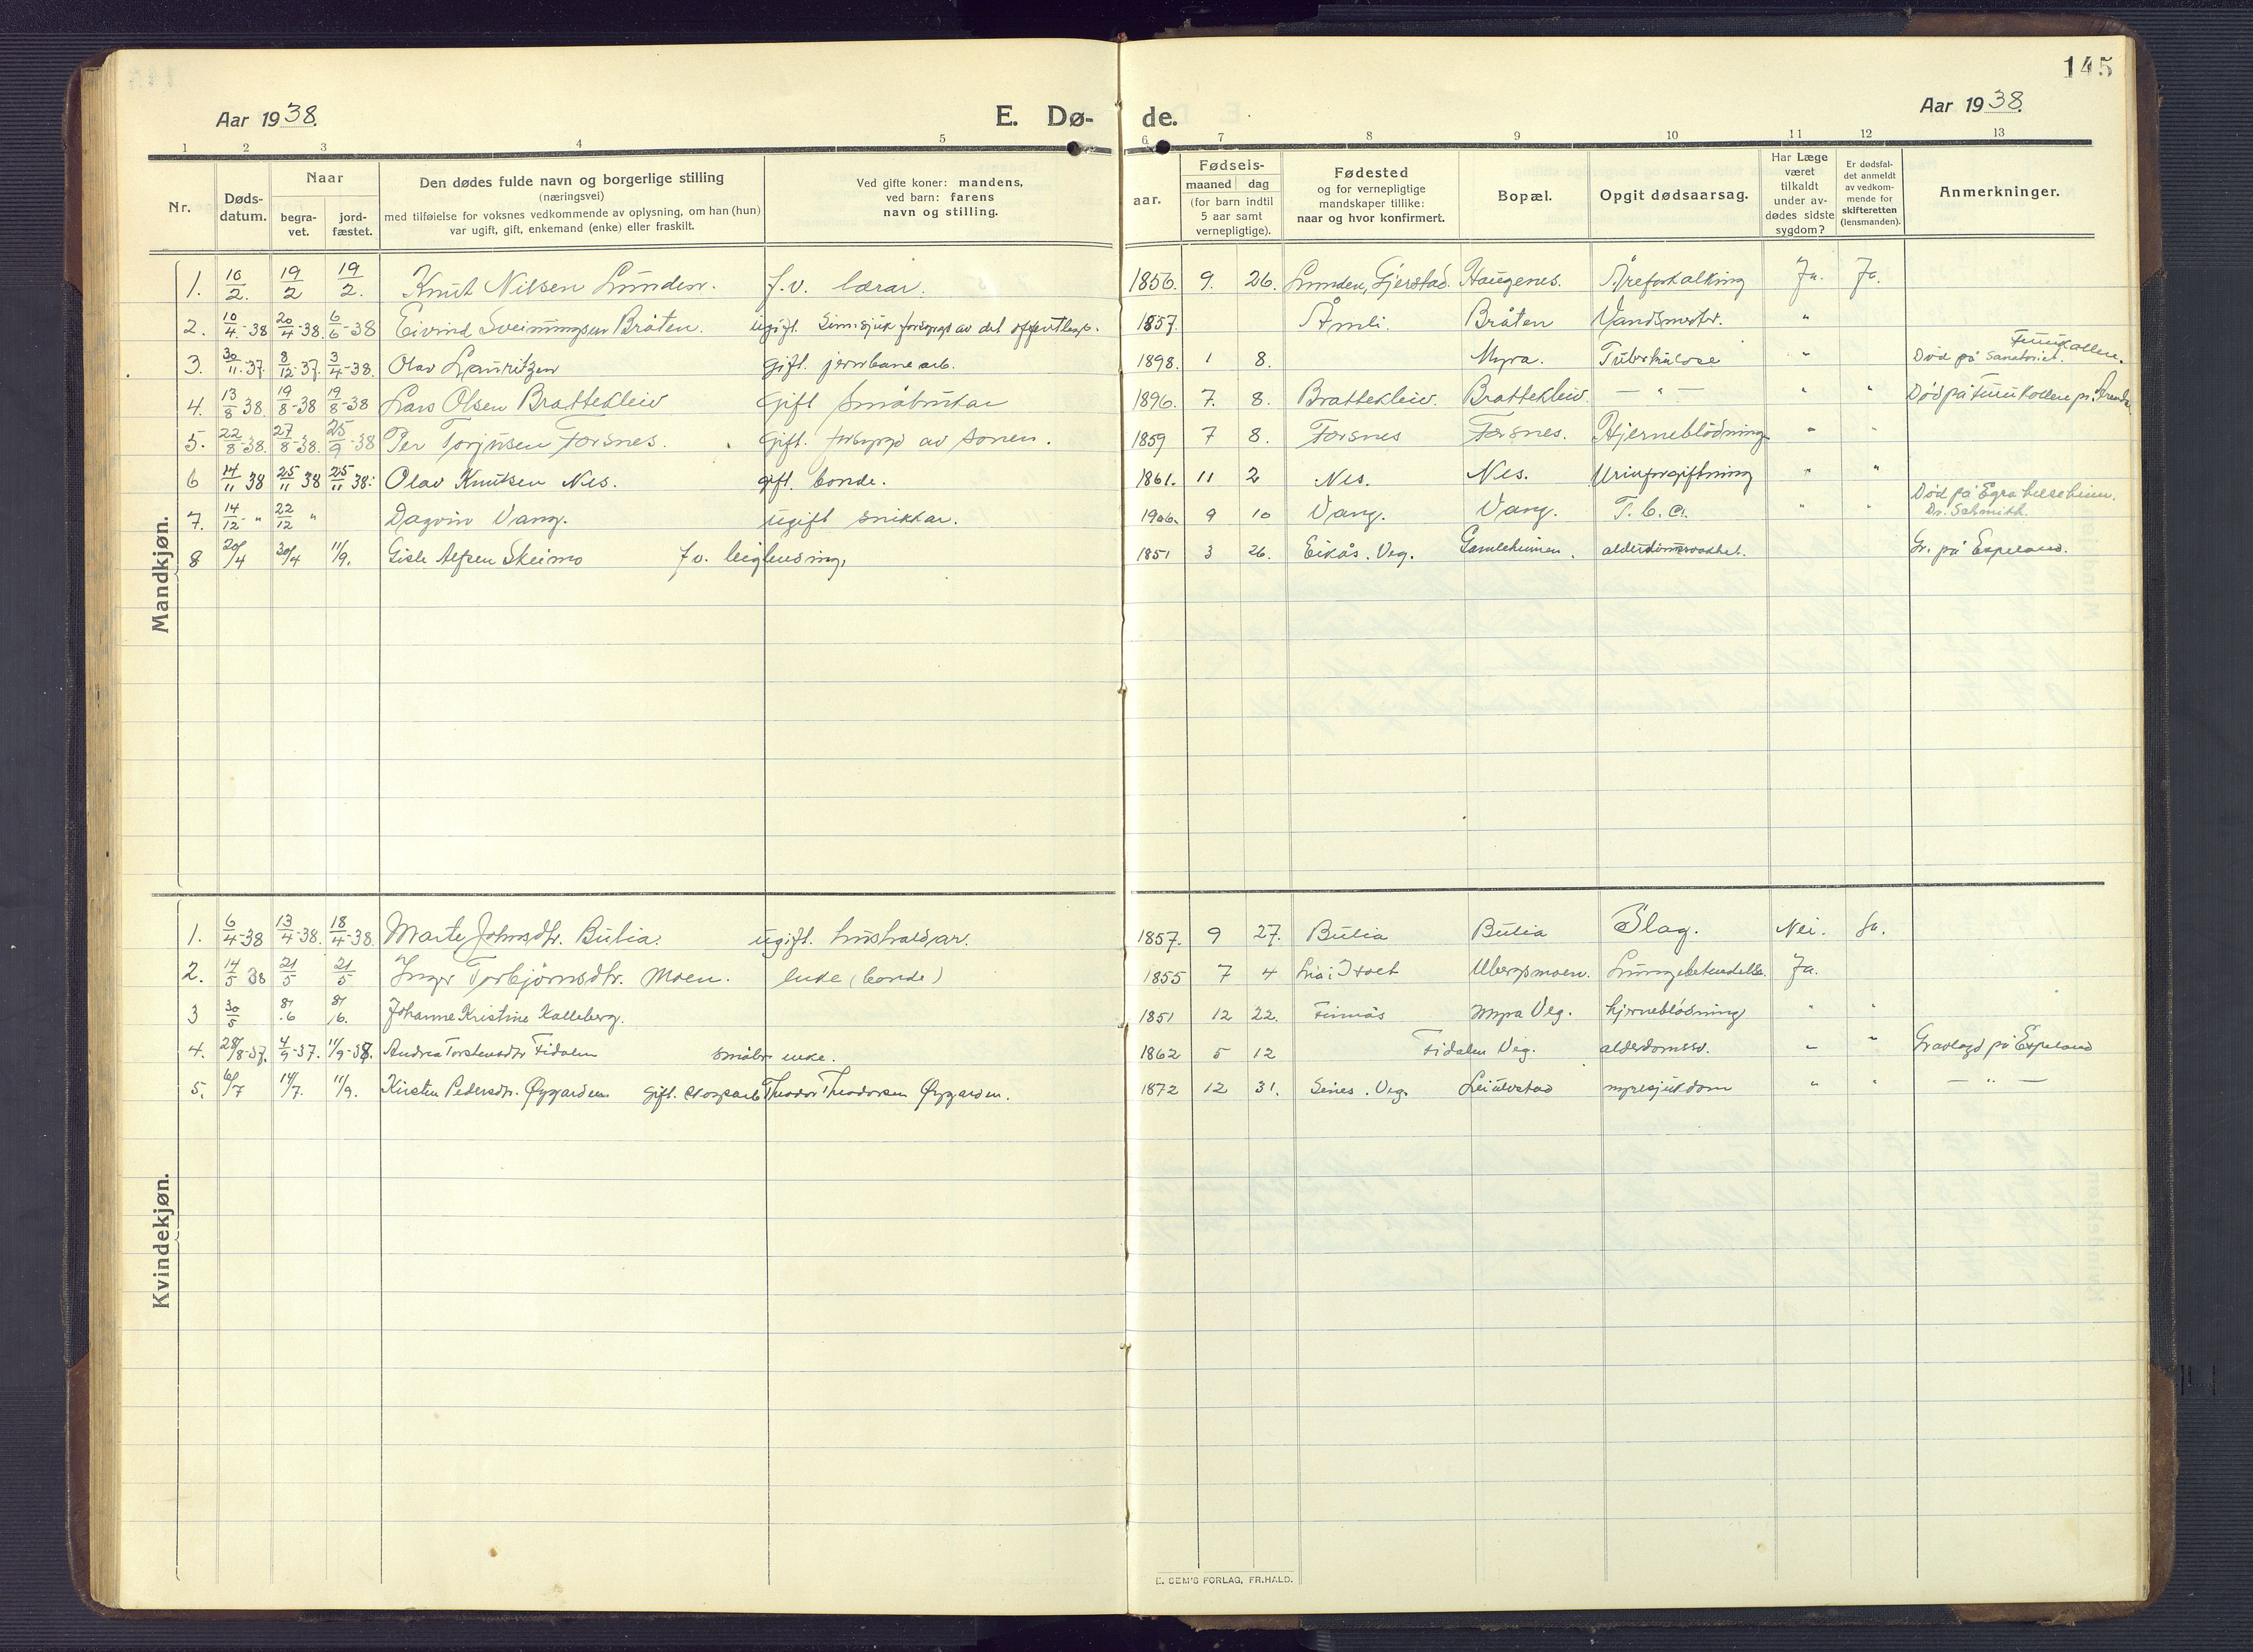 145
Aar 1938.
E. Dø-
de.
Aar 1938.
1 2 3 4 5 6 7 8 9 10 11 12 13
Nr.
Døds-
datum.
Naar
begra-
vet.
jord-
fæstet.
Den dødes fulde navn og borgerlige stilling
(næringsvei)
med tilføielse for voksnes vedkommende av oplysning, om han (hun)
var ugift, gift, enkemand (enke) eller fraskilt.
Ved gifte koner: mandens,
ved barn: farens
navn og stilling.
aar.
Fødsels-
maaned dag
(for barn indtil
5 aar samt
vernepligtige).
Fødested
og for vernepligtige
mandskaper tillike:
naar og hvor konfirmert.
Bopæl.
Opgit dødsaarsag.
Har Læge
været
tilkaldt
under av-
dødes sidste
sygdom?
Er dødsfal-
det anmeldt
av vedkom-
mende for
skifteretten
(lensmanden).
Anmerkninger.
Mandkjøn.
1. 10/2. 19/2 19/2. Knut Nilsen Lunden. f.v. lærar. 1856. 9. 26. Lunden, Gjerstad. Haugenes. Åreforkalking Ja. Ja.
2. 10/4-38 20/4-38. 6/6-38 Eivind Sveinungsen Bråten. ugift. Sinnsjuk forsørgt av det offentlege. 1857. Åmli. Bråten "
3. 30/11-37. 8/12-37. 3/4-38. Olav Lauritzen gift. jernbanearb. 1898. 1 8. Myra. Tuberkulose " Død på Sanatoriet.
4. 13/8 38. 19/8-38 19/8-38 Lars Olsen Brattekleiv Gift Småbrukar 1896. 7. 8. Brattekleiv. Brattekleiv. — " — " " Død på
5. 22/8-38. 27/8-38. 25/9-38 Per Torjusen Forsnes. Gift. forsørgd av sonen. 1859 7 8. Forsnes Forsnes. Hjerneblödning " "
6 14/11 38 25/11 38 25/11 38. Olav Knutsen Nes. gift. bonde. 1861. 11 2 Nes. Nes. Urinforgiftning " "
7. 14/12 - " 22/12 " Dagvin Vang. ugift snikkar. 1906. 9 10 Vang. Vang. T. b. c. " " Død på Egra helseheim.
Dr. Schmith.
8 20/4 30/4 11/9. Gisle Alfsen Skeimo f.v. leiglending. 1851 3 26. Eikås. Veg. Gamleheimen. Gr. på Espeland.
Kvindekjøn.
1. 6/4-38 13/4-38. 18/4-38. Marte Johnsdtr. Bulia. ugift. hushaldar. 1857. 9 27. Bulia Bulia Slag. Nei. Ja.
2. 14/5 38 21/5 21/5 Inger Torbjörnsdtr. Moen. enke (bonde) 1855 7 4 Ubergsmoen. Lungebetendelse. Ja.
3 30/5 8/6 8/6. Johanne Kristine Kalleberg. 1851 12 22. Finnås Myra Veg. hjerneblödning " "
4. 28/8-37. 4/9-37. 11/9-38. Andrea Torstensdtr Fidalen småbr. enke. 1862 5 12 Fidalen Veg. alderdomssv. " " Gravlagd på Espeland
5. 6/7 14/7. 11/9. Kirsten Pedersdtr. Øygarden Gift. skogsarb Theodor Theodorsen Øygarden. 1872 12 31. Seines. Veg. Leiulvstad nyresjukdom " " — " —
E. SEM'S FORLAG, FR.HALD.